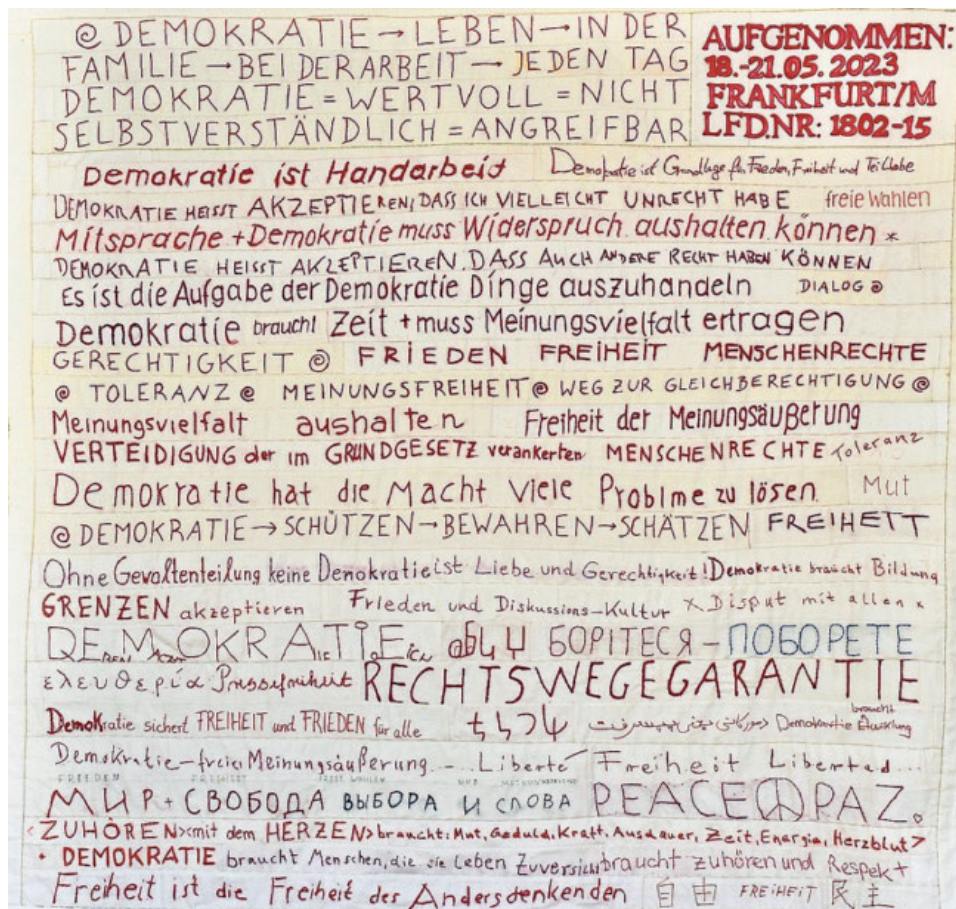 @ DEMOKRATIE → LEBEN → IN DER
FAMILIE → BEI DER ARBEIT → JEDEN TAG
DEMOKRATIE = WERTVOLL = NICHT
SELBSTVERSTÄNDLICH = ANGREIFBAR
AUFGENOMMEN:
18.-21.05.2023
FRANKFURT/M
LFD.NR: 1802-15
Demokratie ist Handarbeit Demokratie ist Grundlage für Frieden, Freiheit und Teilhabe
DEMOKRATIE HEISST AKZEPTIEREN, DASS ICH VIELLEICHT UNRECHT HABE freie Wahlen
Mitsprache + Demokratie muss Widerspruch aushalten können *
DEMOKRATIE HEISST AKZEPTIEREN, DASS AUCH ANDERE RECHT HABEN KÖNNEN
Es ist die Aufgabe der Demokratie Dinge auszuhandeln DIALOG @
Demokratie braucht Zeit + muss Meinungsvielfalt ertragen
GERECHTIGKEIT @ FRIEDEN FREIHEIT MENSCHENRECHTE
@ TOLERANZ @ MEINUNGSFREIHEIT @ WEG ZUR GLEICHBERECHTIGUNG @
Meinungsvielfalt aushalten Freiheit der Meinungsäußerung
VERTEIDIGUNG der im GRUNDGESETZ verankerten MENSCHENRECHTE Toleranz
Demokratie hat die Macht viele Problme zu lösen. Mut
@ DEMOKRATIE → SCHÜTZEN → BEWAHREN → SCHÄTZEN FREIHEIT
Ohne Gewaltenteilung keine Demokratie ist Liebe und Gerechtigkeit! Demokratie braucht Bildung
GRENZEN akzeptieren Frieden und Diskussions-Kultur x Disput mit allen x
DEMOKRATIE БОРІТЕСЯ – ПОБОРЕТЕ
ελευθερία Pressefreiheit RECHTSWEGEGARANTIE
Demokratie sichert FREIHEIT und FRIEDEN für alle Demokratie braucht
Demokratie – freie Meinungsäußerung - ... Liberté Freiheit Libertad ...
FRIEDEN FREIHEIT FREIE WAHLEN UND
МИР + СВОБОДА ВЫБОРА И СЛОВА PEACE ☮ PAZ.
<ZUHÖREN><mit dem HERZEN> braucht: Mut, Geduld, Kraft, Ausdauer, Zeit, Energie, Herzblut>
• DEMOKRATIE braucht Menschen, die sie leben Zuversicht braucht zuhören und Respekt
Freiheit ist die Freiheit des Andersdenkenden 自由 FREIHEIT 民主